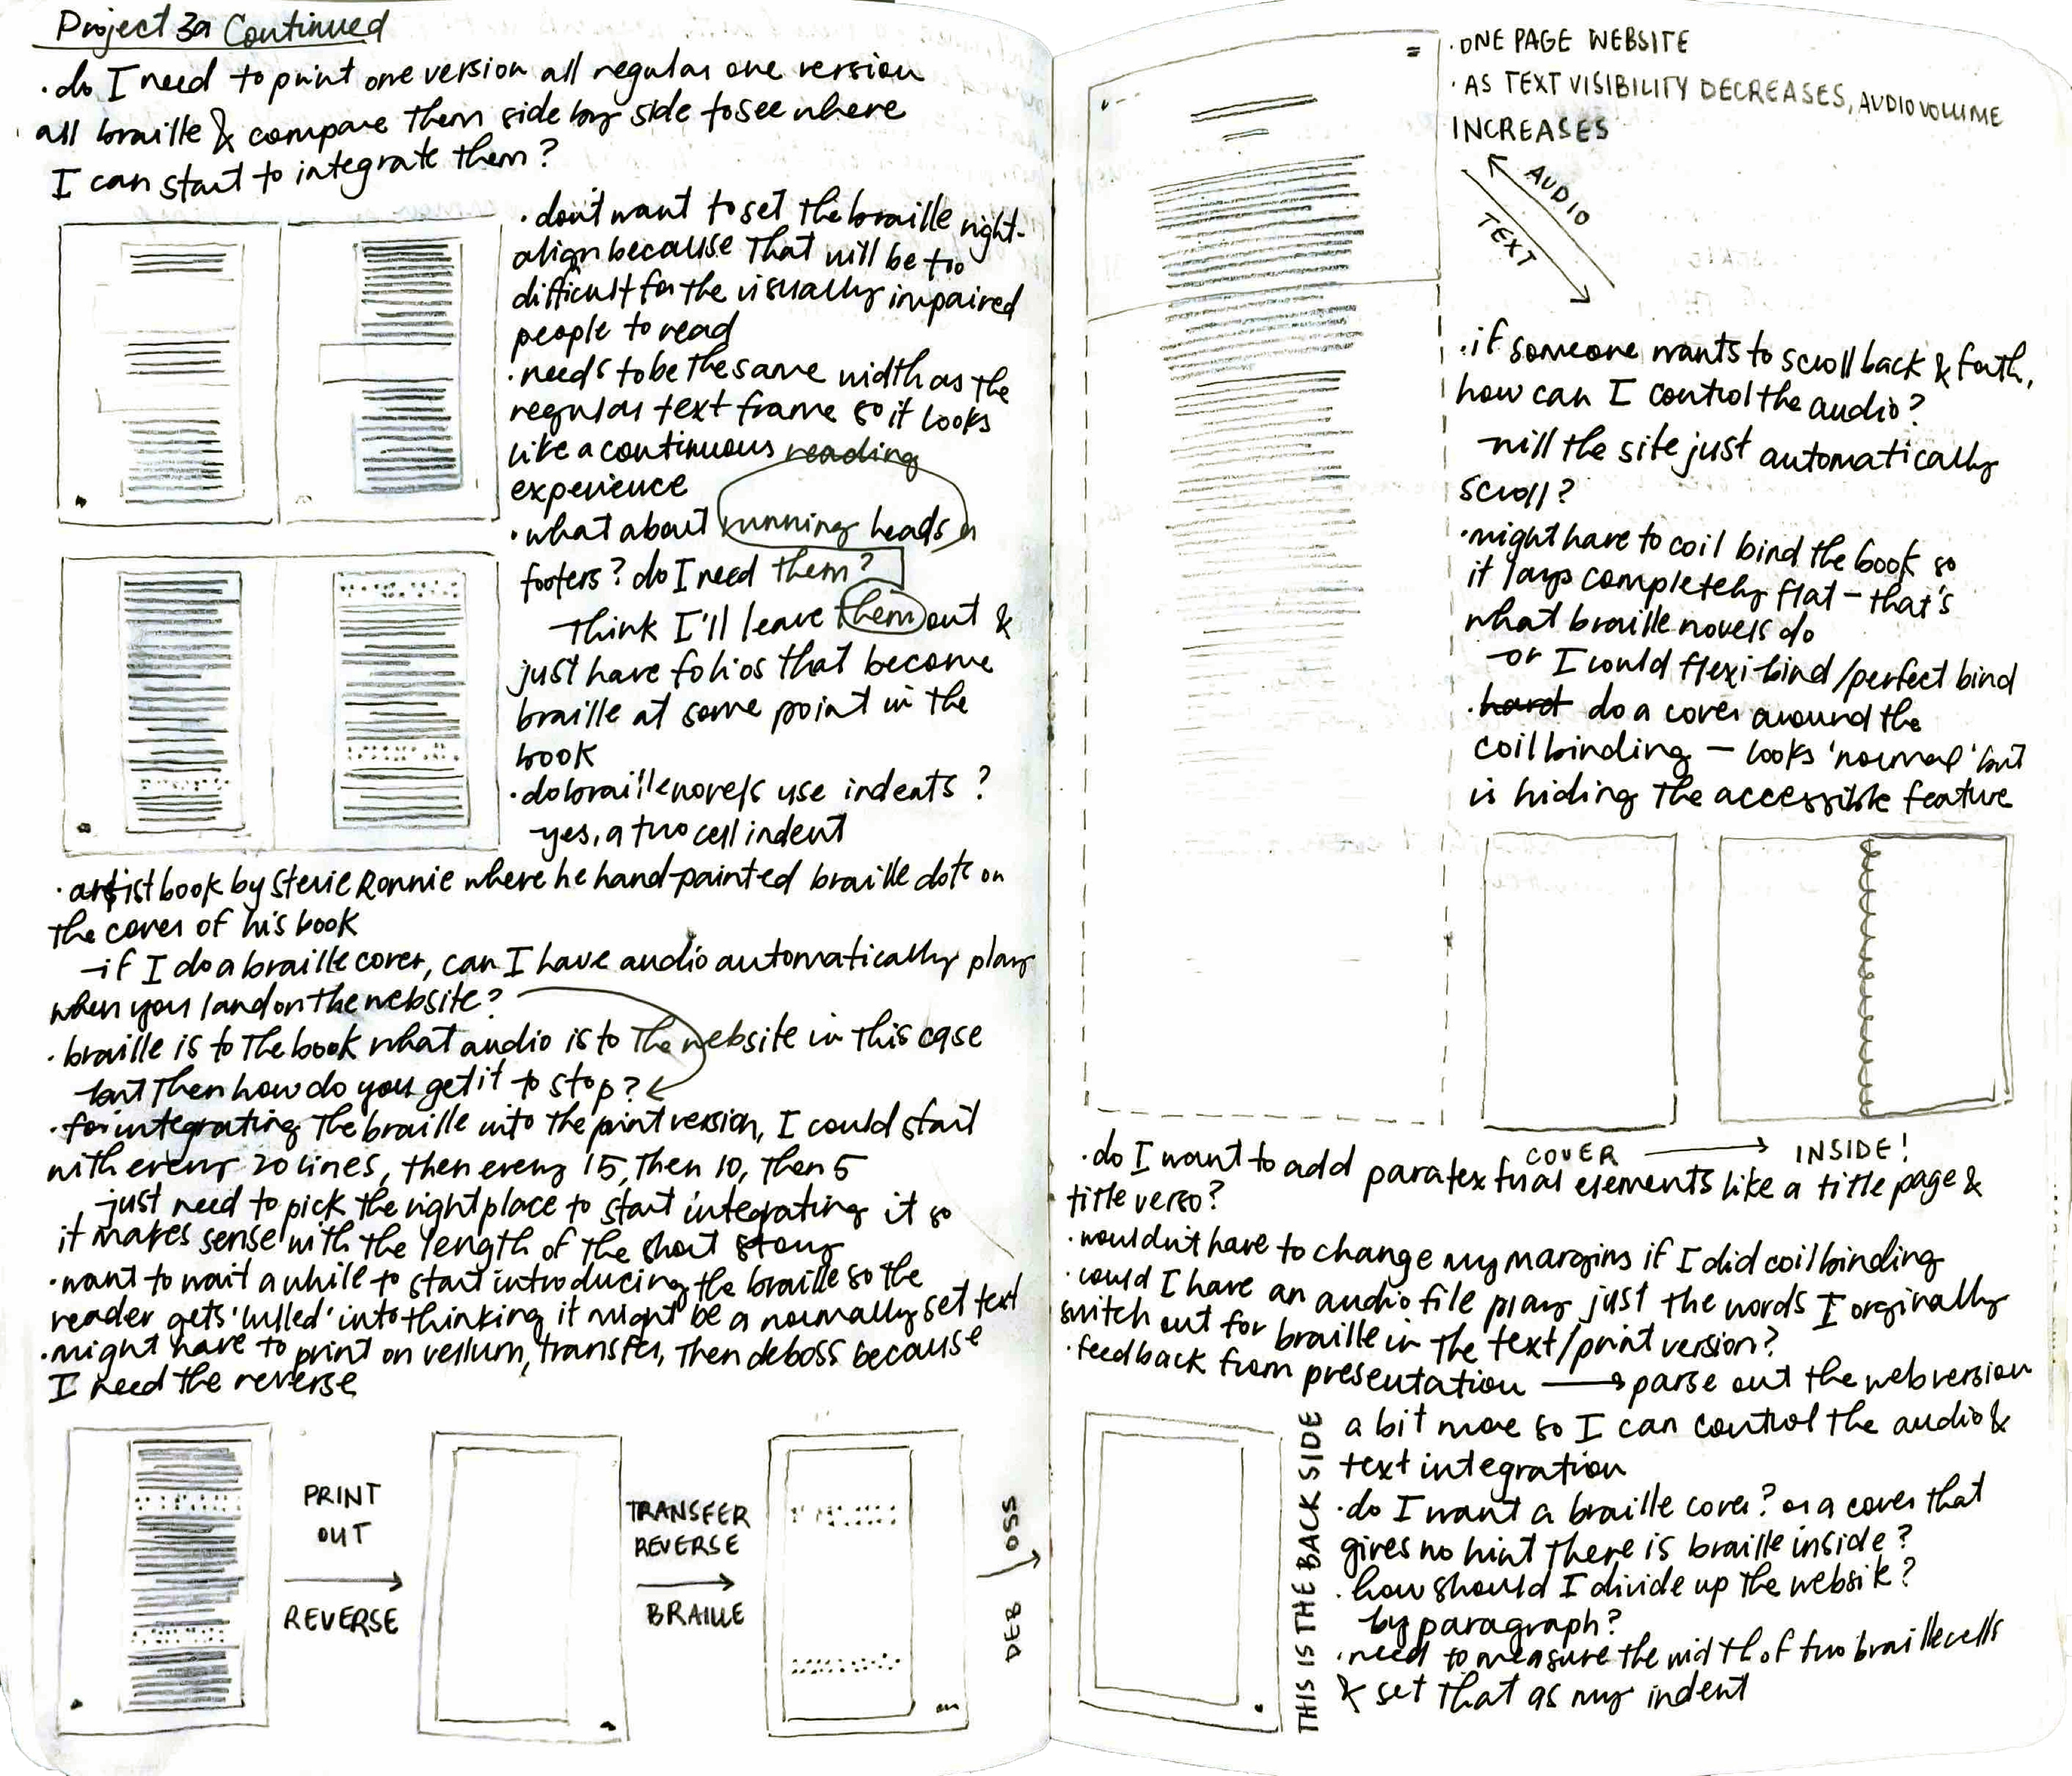 Project 3a Continued
· do I need to print one version all regular one version
all braille & compare them side by side to see where
I can start to integrate them?
· don't want to set the braille right-
align because that will be too
difficult for the visually impaired
people to read
· needs to be the same width as the
regular text frame so it looks
like a continuous reading
experience
· what about running heads,
footers? do I need them?
- Think I'll leave them out &
just have folios that become
braille at some point in the
book
· do braille novels use indents?
- yes, a two cell indent
· artist book by Stevie Ronnie where he hand-painted braille dots on
the cover of his book
- if I do a braille cover, can I have audio automatically play
when you land on the website?
· braille is to the book what audio is to the website in this case
- but then how do you get it to stop?
· for integrating the braille into the print version, I could start
with every 20 lines, then every 15, then 10, then 5
- just need to pick the right place to start integrating it so
it makes sense with the length of the short story
· want to wait a while to start introducing the braille so the
reader gets 'lulled' into thinking it might be a normally set text
· might have to print on vellum, transfer, then deboss because
I need the reverse
PRINT
OUT
REVERSE
TRANSFER
REVERSE
BRAILLE
DEB OSS
· ONE PAGE WEBSITE
· AS TEXT VISIBILITY DECREASES, AUDIO VOLUME
INCREASES
AUDIO
TEXT
· if someone wants to scroll back & forth,
how can I control the audio?
- will the site just automatically
scroll?
· might have to coil bind the book so
it lays completely flat - that's
what braille novels do
- or I could flexi bind/perfect bind
· hard do a cover around the
coil binding - looks 'normal' but
is hiding the accessible feature
COVER
INSIDE!
· do I want to add paratextual elements like a title page &
title verso?
· wouldn't have to change my margins if I did coil binding
· could I have an audio file play just the words I orginally
switch out for braille in the text/print version?
· feedback from presentation → parse out the web version
a bit more so I can control the audio &
text integration
· do I want a braille cover? or a cover that
gives no hint there is braille inside?
· how should I divide up the website?
- by paragraph?
· need to measure the width of two braille cells
& set that as my indent
THIS IS THE BACK SIDE